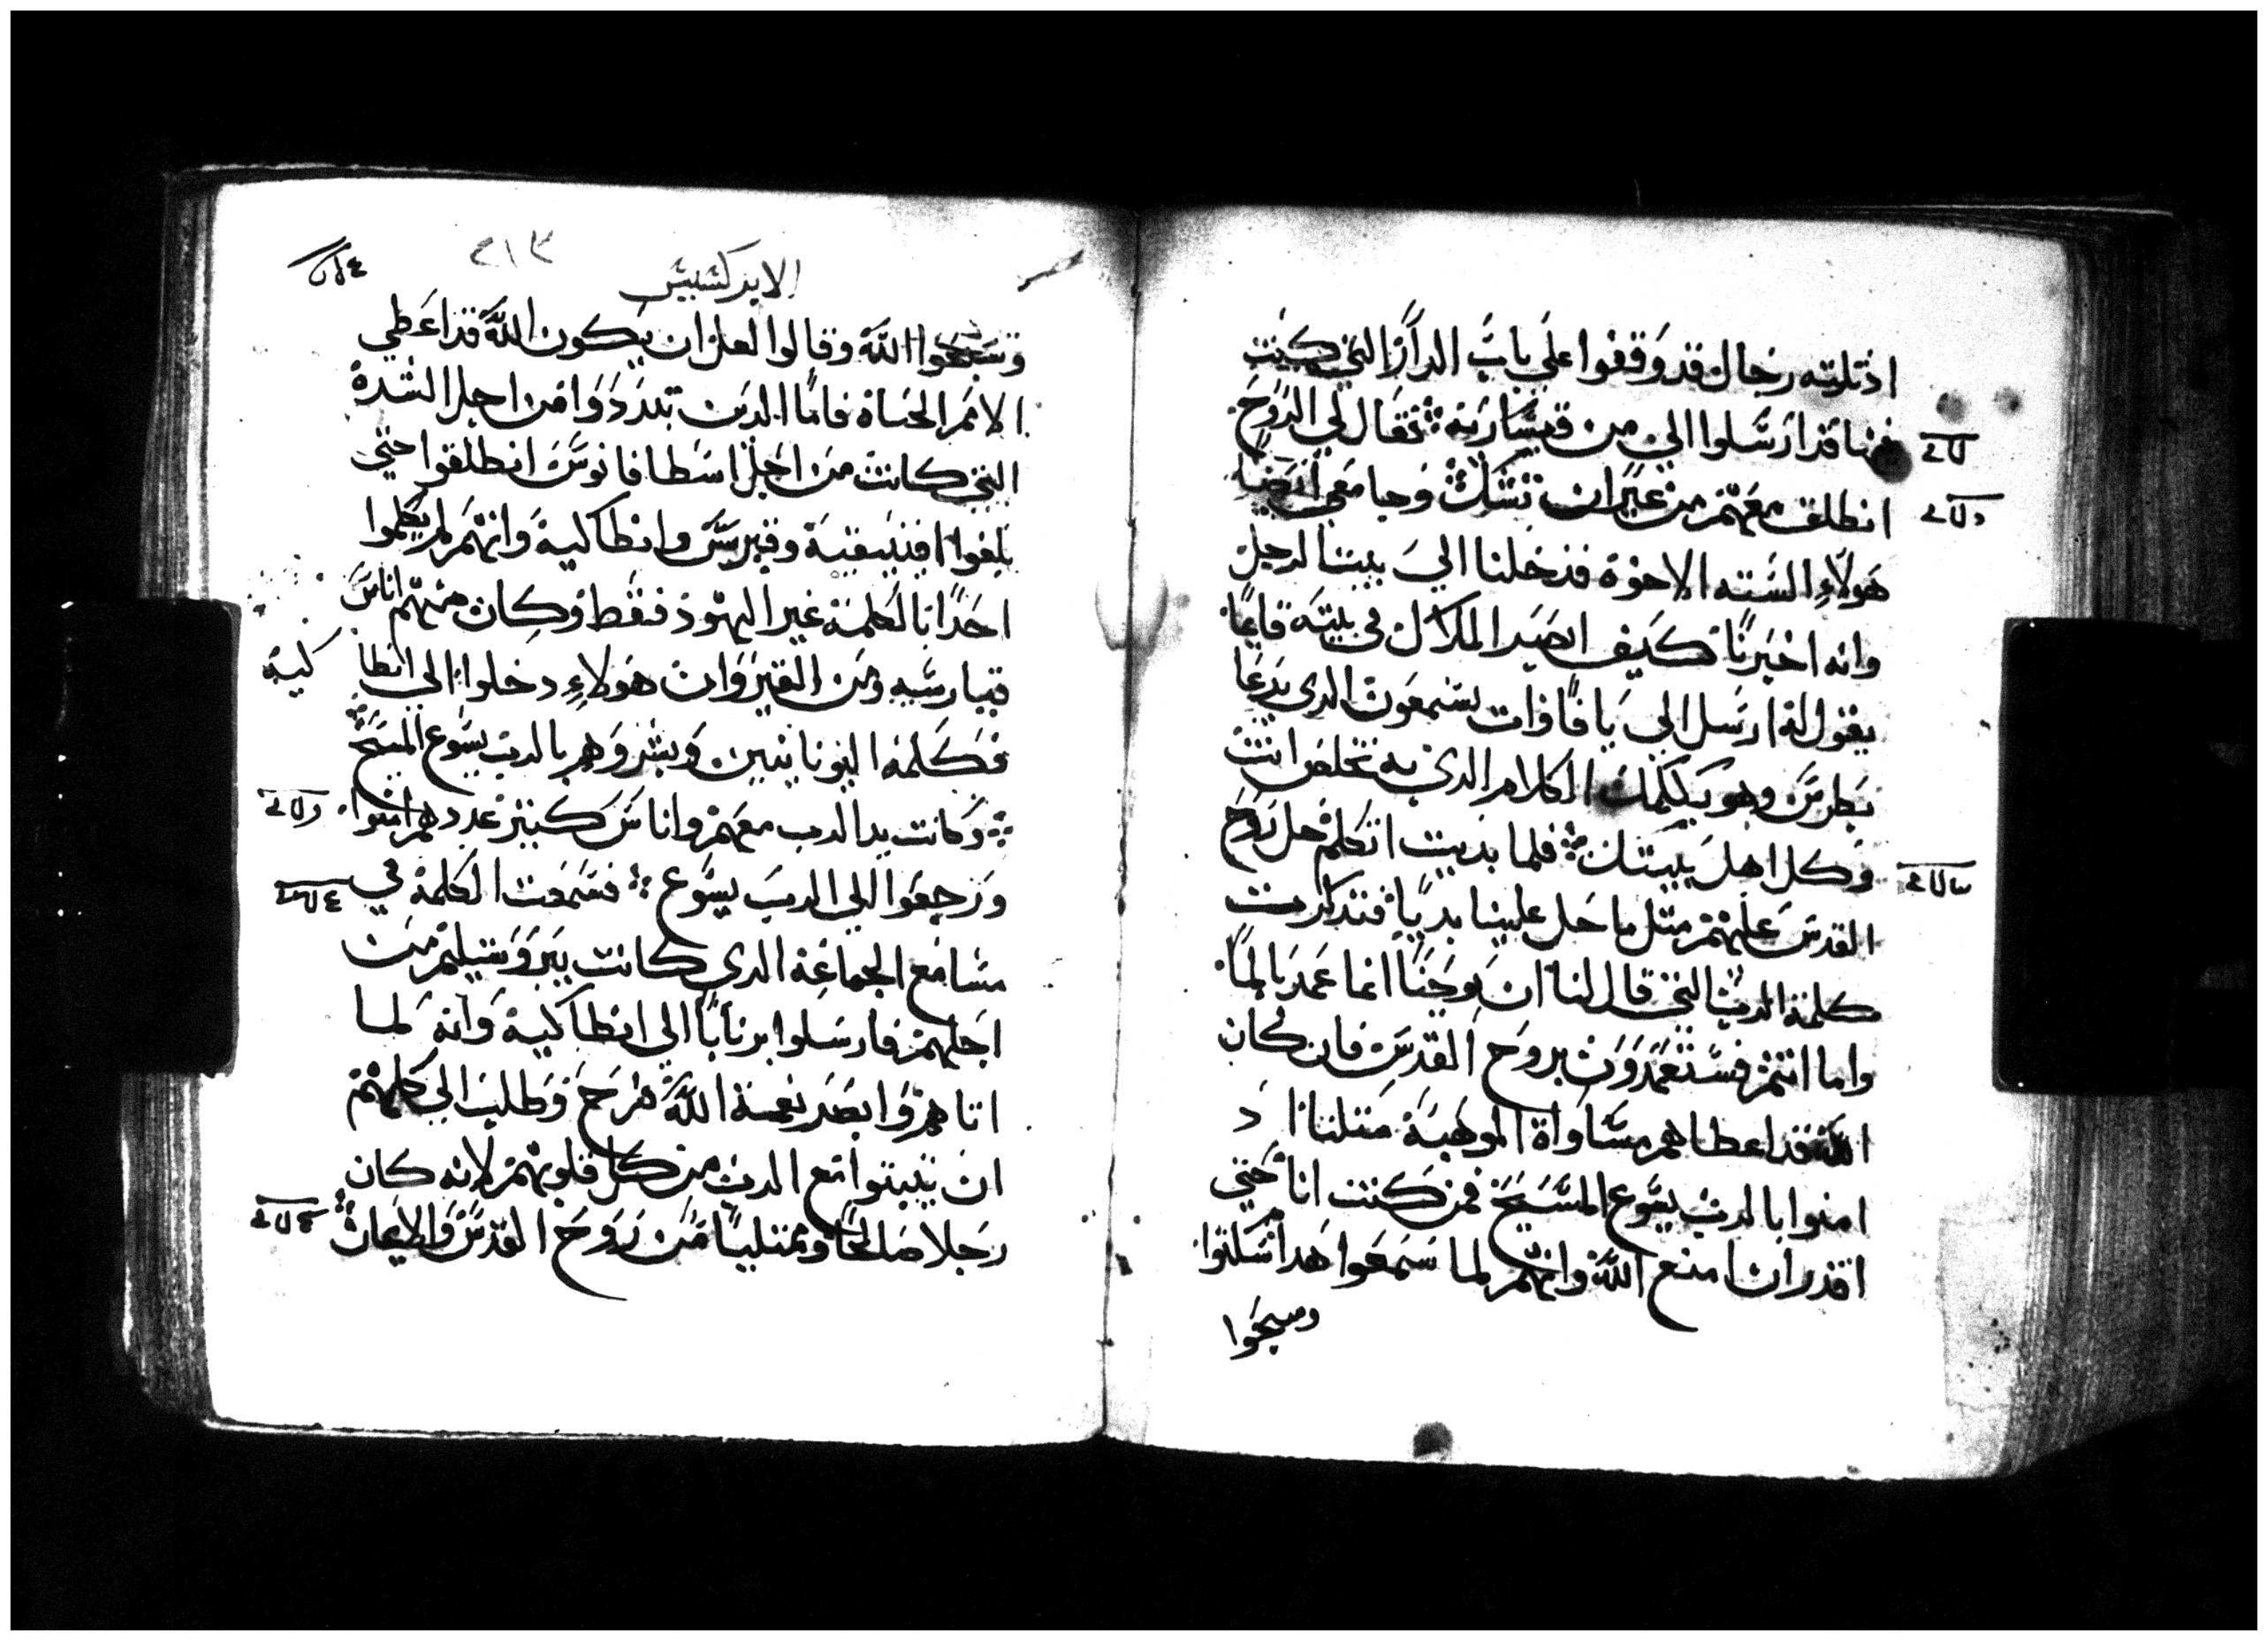 اذ تلتة رجال قد وقفوا علي باب الدار التي كنت
فيها قد ارسلوا الي من قيسارية فقال لي الروح
انطلق معهم من غير ان تشك وجا معي ايضا
هولاء الستة الاخوة فدخلنا الي بيت الرجل
وانه اخبرنا كيف ابصر الملاك في بيته قايما
يقول له ارسل الي يافا وات بسمعون الدي يدعا
بطرس وهو يكلمك الكلام الدي به تخلص انت
وكل اهل بيتك فلما بديت اتكلم حل روح
القدس عليهم مثل ما حل علينا بديا فتدكرت
كلمة الرب التي قال لنا ان يوحنا انما عمد بالما
واما انتم فستعمدون بروح القدس فان كان
الله قد اعطاهم مساواة الموهبة مثلنا اد
امنوا بالرب يسوع المسيح فمن كنت انا حتي
اقدر ان امنع الله وانهم لما سمعوا هدا سكتوا
وسبحوا
٢١٣
الابركسيس
وسبحوا الله وقالوا لعل ان يكون الله قد اعطي
الامم الحياة فاما الدين تبددوا من اجل الشدة
التي كانت من اجل اسطافانوس انطلقوا حتي
بلغوا افنيقية وقبرس وانطاكية وانهم لم يكلموا
احدا بالكلمة غير اليهود فقط وكان منهم اناس
قبارسيه ومن القيروان هولاء دخلوا الي انطا
كية
فكلمة اليونانيين وبشروهم بالرب يسوع المسيح
وكانت يد الرب معهم واناس كبير عددهم امنوا
ورجعوا الي الرب يسوع فسمعت الكلمة في
مسامع الجماعة الدي كانت بيروشيليم من
اجلهم فارسلوا برنابا الي انطاكية وانه لما
اتاهم وابصر نعمة الله فرح وطلب الي كلهم
ان يثبتوا مع الرب من كل قلوبهم لانه كان
رجلا صالحا وممتليا من روح القدس والايمان